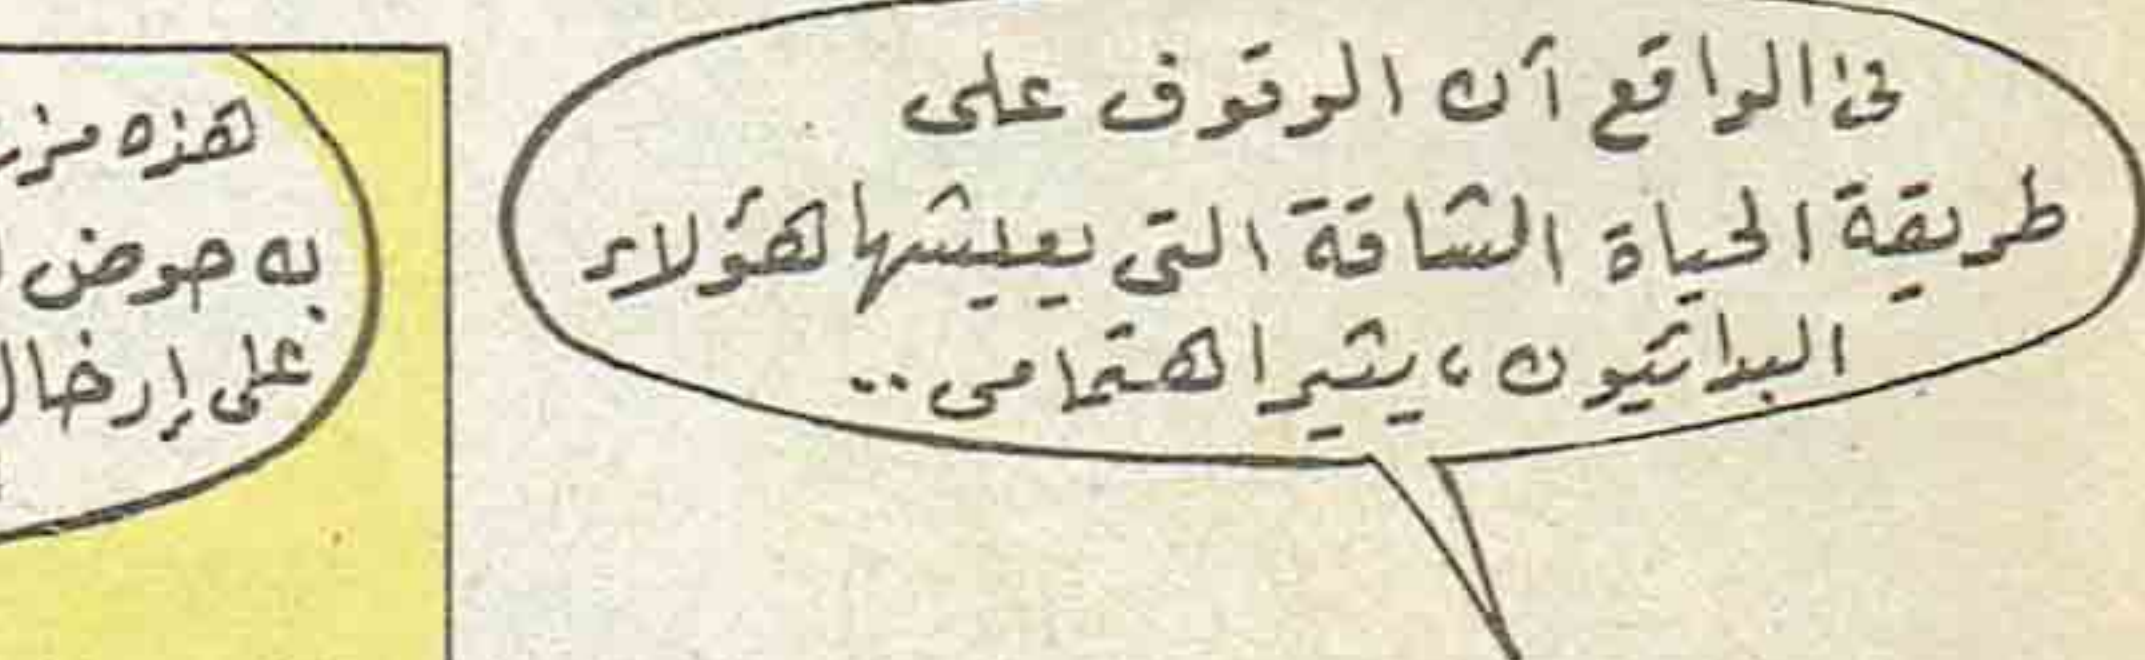 فى الواقع أن الوقوف على
طريقة الحياة الشاقة التى يعيشها هؤلاء
البدائيون، يثير اهتمامى..
هذه
به حوض
على إدخال